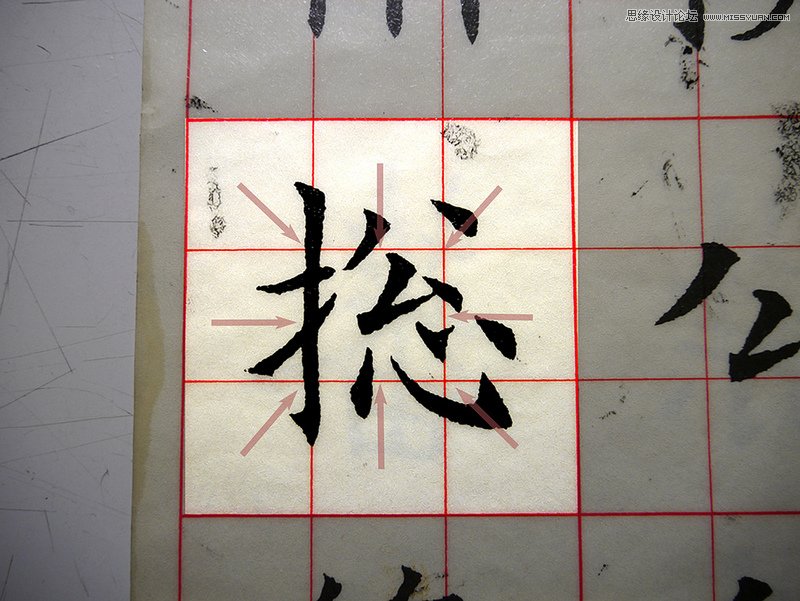 思缘设计论坛 WWW.MISSYUAN.COM
捴